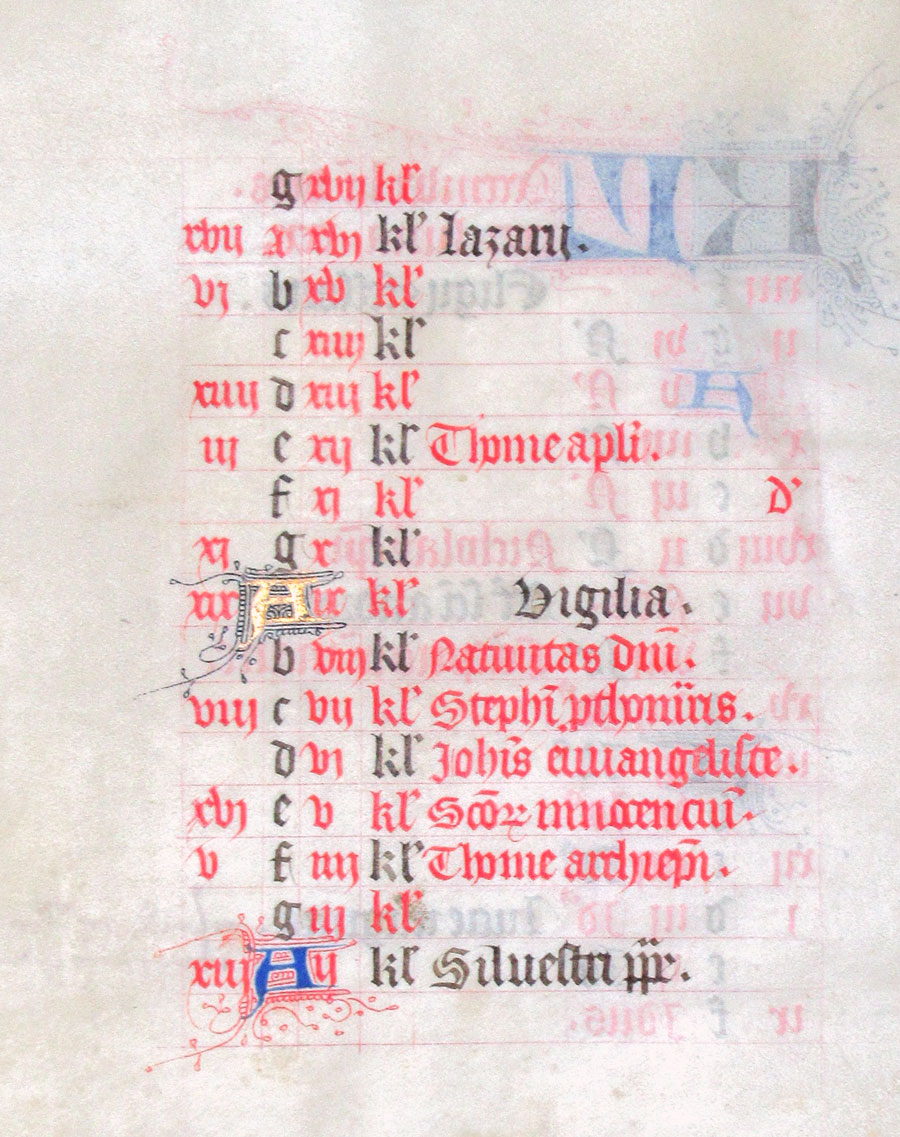 g xvij kl'
xvij A xvj kl' lazarij.
vj b xv kl'
c xiiij kl'
xiiij d xiij kl'
iij e xij kl' Thome apl'i.
f xj kl' D'
xj g x kl'
xix A ix kl' Vigilia.
b viij kl' Natiuitas dn̄i.
viij c vij kl' Stephī
d vj kl' Joh̄is euuangeliste.
xvj e v kl' Sc̄oꝝ innocenciū.
v f iiij kl' Thome archiep̄i.
g iij kl'
xiij A ij kl' Siluestri